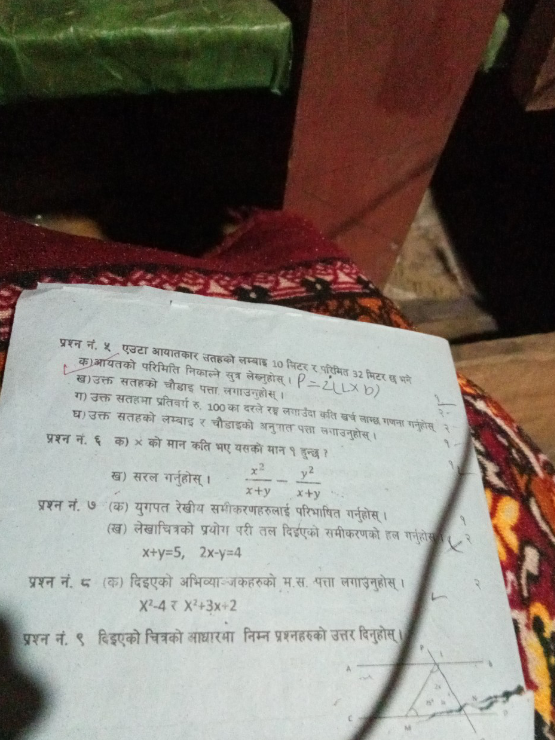 प्रश्न नं. ५ एउटा आयातकार सतहको लम्बाइ 10 मिटर र परिमित 32 मिटर छ भने
क)आयतको परिमिति निकाल्ने सुत्र लेख्नुहोस् । P = 2(l x b)
ख)उक्त सतहको चौडाइ पत्ता लगाउनुहोस् ।
ग) उक्त सतहमा प्रतिवर्ग रु. 100 का दरले रङ्ग लगाउँदा कति खर्च लाग्छ गणना गर्नुहोस्
घ)उक्त सतहको लम्बाइ र चौडाइको अनुपात पत्ता लगाउनुहोस् ।
प्रश्न नं. ६ क) × को मान कति भए यसको मान १ हुन्छ ?
ख) सरल गर्नुहोस् । x²/x+y − y²/x+y
प्रश्न नं. ७ (क) युगपत रेखीय समीकरणहरुलाई परिभाषित गर्नुहोस् ।
(ख) लेखाचित्रको प्रयोग परी तल दिइएको समीकरणको हल गर्नुहोस्
x+y=5, 2x-y=4
प्रश्न नं. ८ (क) दिइएको अभिव्याञ्जकहरुको म.स. पत्ता लगाउनुहोस् । २
X²-4 र X²+3x+2
प्रश्न नं. ९ दिइएको चित्रको आधारमा निम्न प्रश्नहरुको उत्तर दिनुहोस् ।
P
A
M